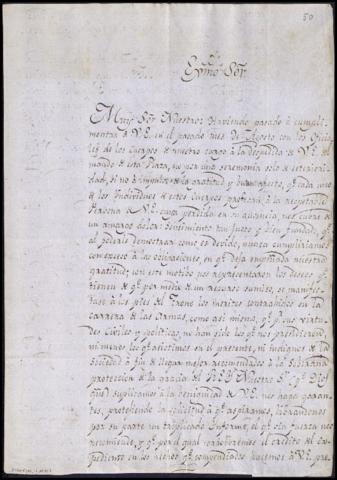 50
Exmo. Sor.
Muy Sor. Nuestro: Haviendo pasado à cumpli-
mentar à V.E. en el pasado mes de Agosto con los Oficia-
les de los Cuerpos de nuestro cargo à la despedida de V.E. del
mando de esta Plaza, no por una ceremonia solo de exterioridad
dad, si no à impulsos de la gratitud y buen afecto, qe. cada uno
de los Individuos de estos Cuerpos profesan à la respetable
Persona de V.E. cuya perdida en su ausencia, nos cubre de
un amargo dolor: Sentimiento tan justo y bien fundado, qe.
al poderlo demostrar como es devido, nunca cumpliriamos
con exceso à las obligaciones, en qe. deja impresionada nuestra
gratitud; con este motivo nos representaron los deseos qe.
tienen de qe. por medio de un recurso sumiso, se manifes-
tase à los pies del Trono los meritos contrahidos en la
carrera de las Armas, como asi mismo, qe. pr. sus virtu-
des Civiles y politicas, no han sido los qe. nos precedieron,
ni menos los qe. asistimos en el presente, ni indignos de la
Sociedad à fin de llegar mejor recomendados à la Soberana
proteccion à la gracia del REY Nuestro Sor. (qe. Dios
gue.) suplicamos à la benignidad de V.E. nos haga
protegiendo la solicitud à qe. aspiramos, librandonos
por su parte un triplicado Informe, el qe. sin fuerza nos
recomiende, y qe. por el qual el credito del Ex-
pediente en los meritos qe. compendiados hacemos à V.E. pre-